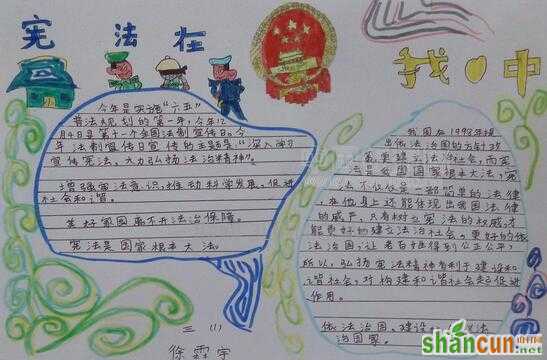 宪法在我心中
今年是实施“六五”
普法规划的第一年，今年12
月4日是第十一个全国法制宣传日。今
年法制宣传日宣传的主题是“深入学习
宣传宪法，大力弘扬法治精神”。
增强宪法意识，推动科学发展，促进
社会和谐。
美好家园离不开法治保障。
宪法是国家根本大法。
三（1）
徐霏宇
我国在1998年提
出依法治国的方针政
策，更建立法治社会，而宪
法是我国国家根本大法，宪
法不仅仅是一部简单的法律
，在他身上还能体现出我国法律
的威严，只有树立宪法的权威，才
能更好的建立法治社会，更好的依
法治国，让老百姓得到公正公平，
所以，弘扬宪法精神有利于建设和
谐社会，对构建和谐社会起促进
作用。
依法治国，建设
法治国家。
shancun
山村网
.net